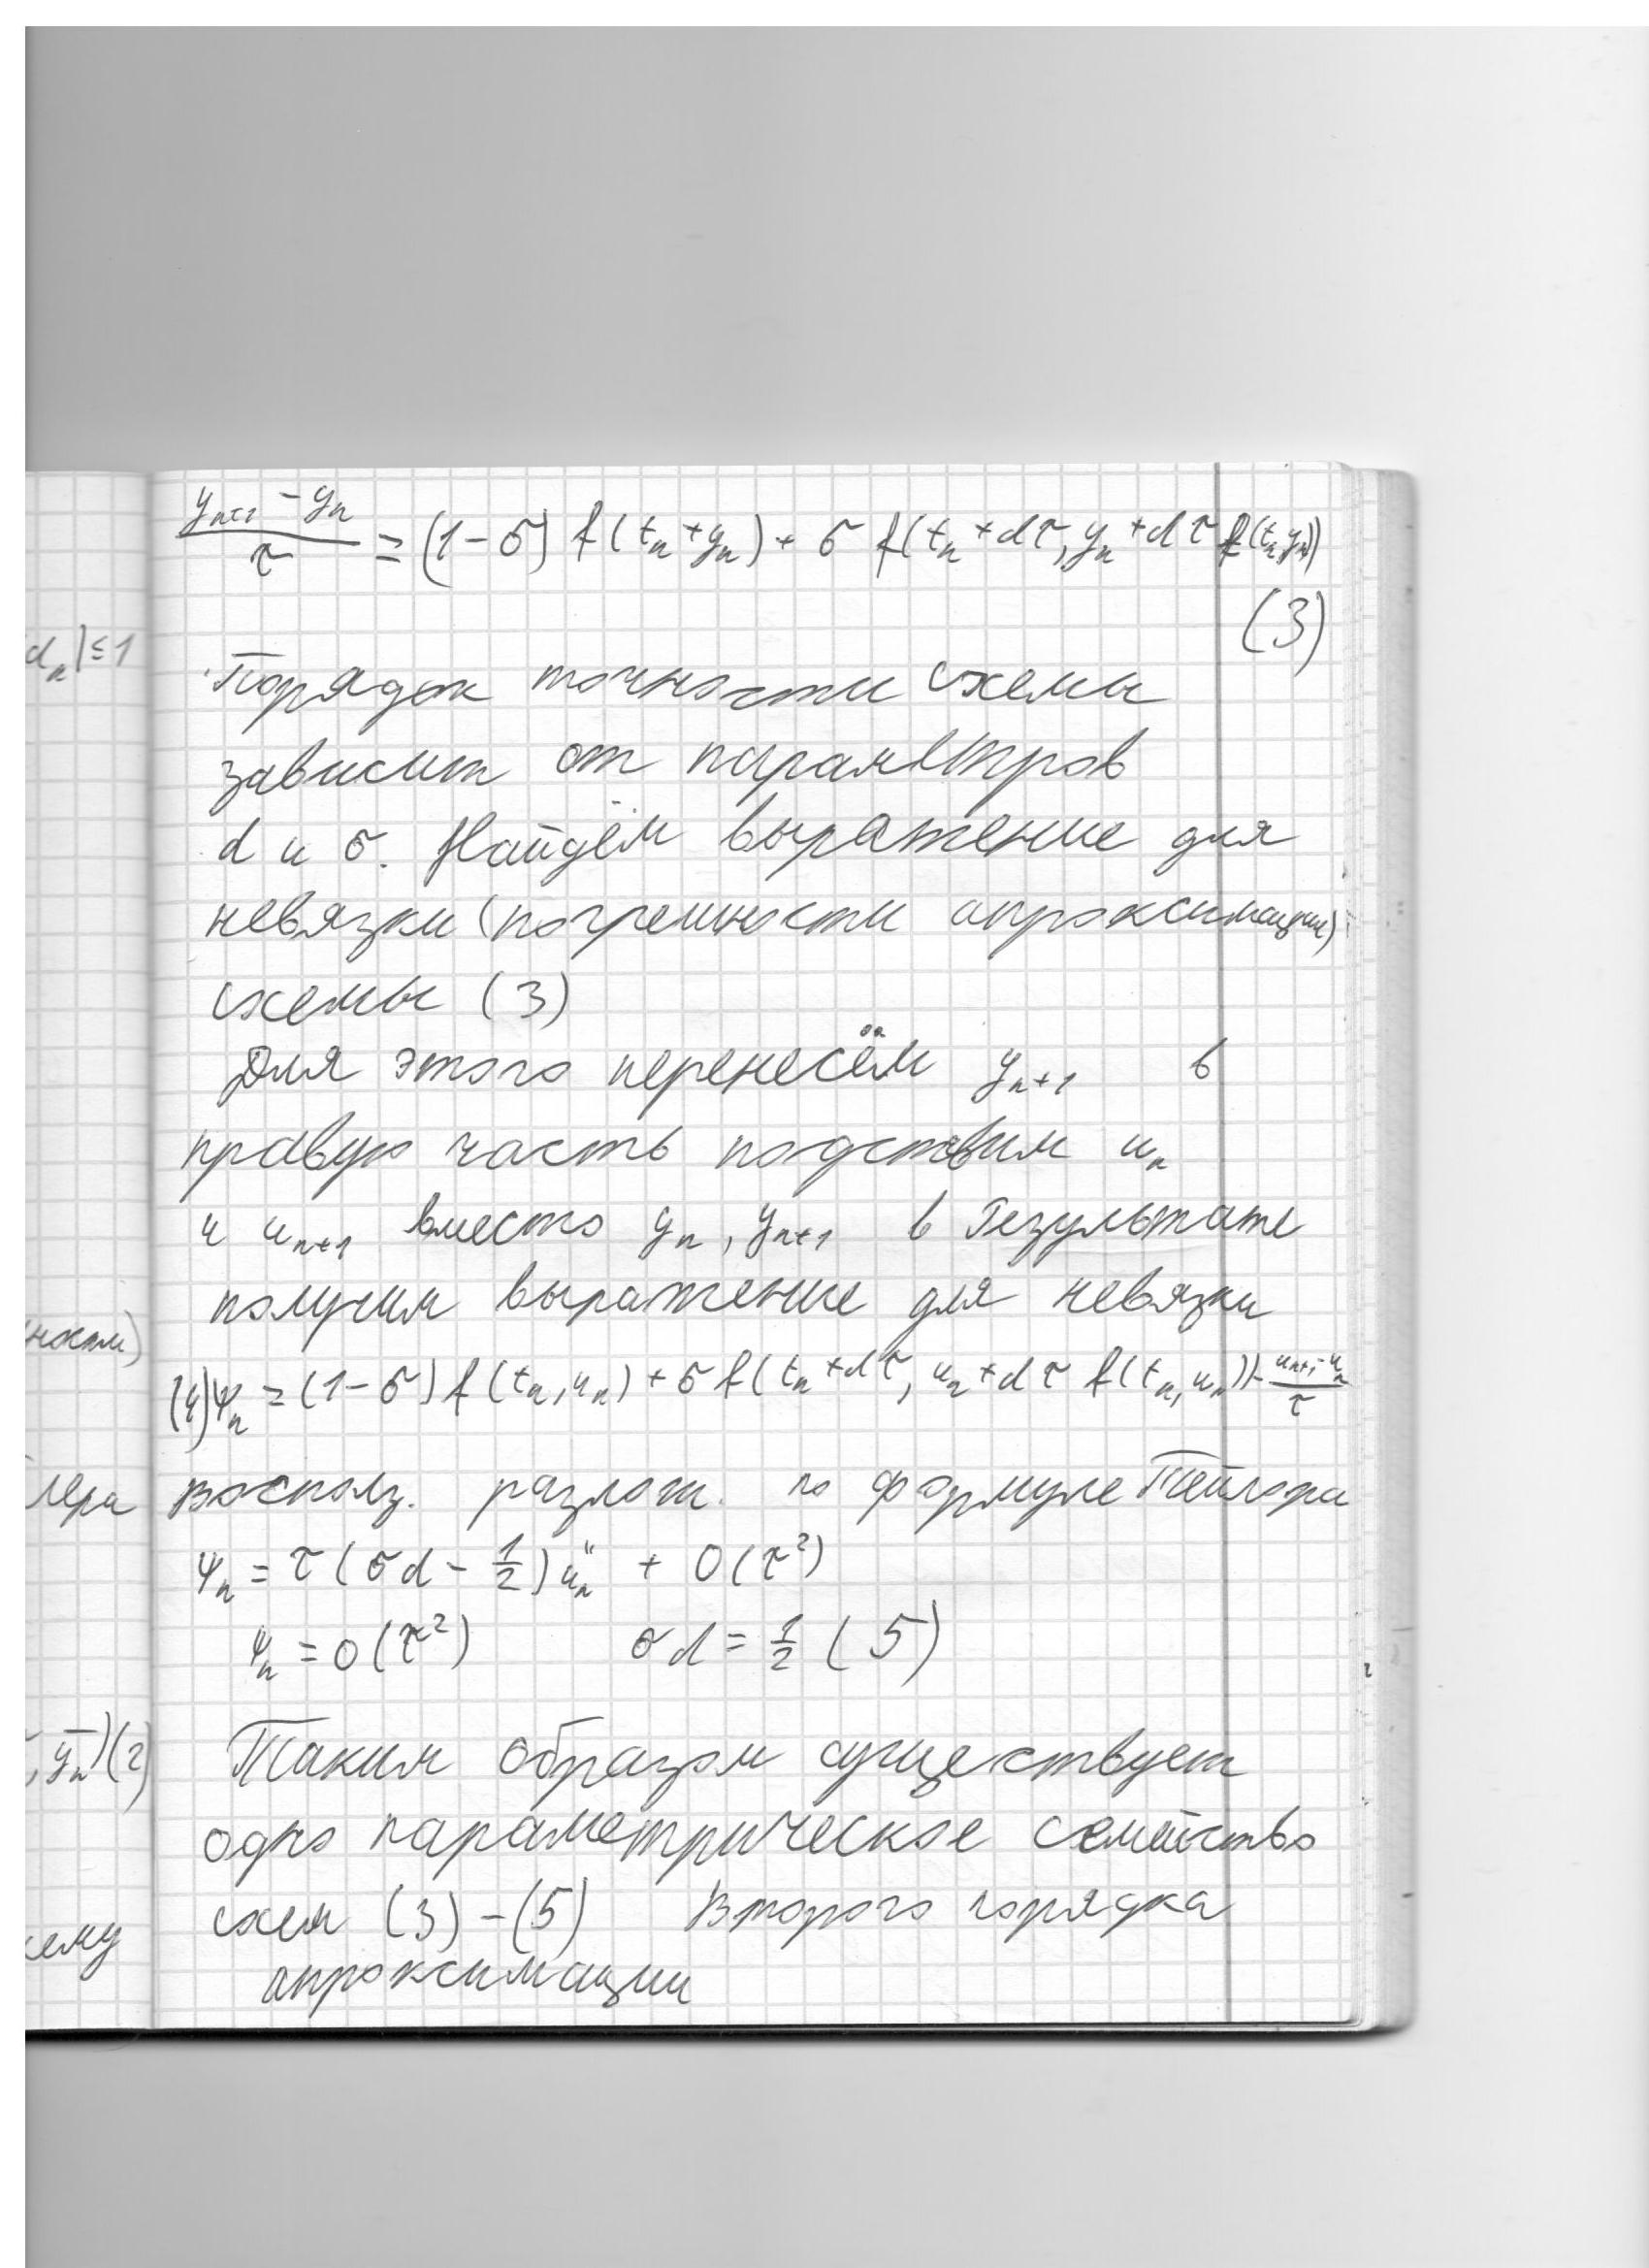 (y_{n+1} - y_n)/τ = (1-σ) f(t_n + y_n) + σ f(t_n + dτ, y_n + dτ f(t_n, y_n))
(3)
Порядок точности схемы
зависит от параметров
d и σ. Найдём выражение для
невязки (погрешности апроксимации)
схемы (3)
Для этого перенесём y_{n+1} в
правую часть подставим u_n
и u_{n+1} вместо y_n, y_{n+1} в результате
получим выражение для невязки
(4) ψ_n = (1-σ) f(t_n, u_n) + σ f(t_n + dτ, u_n + dτ f(t_n, u_n)) - (u_{n+1} - u_n)/τ
воспольз. разлож. по формуле Тейлора
ψ_n = τ(σd - 1/2) ü_n + O(τ²)
ψ_n = O(τ²) σd = 1/2 (5)
Таким образом существует
одно параметрическое семейство
схем (3) - (5) второго порядка
апроксимации
d_n| ≤ 1
ности)
лера
, y_n) (2)
ему